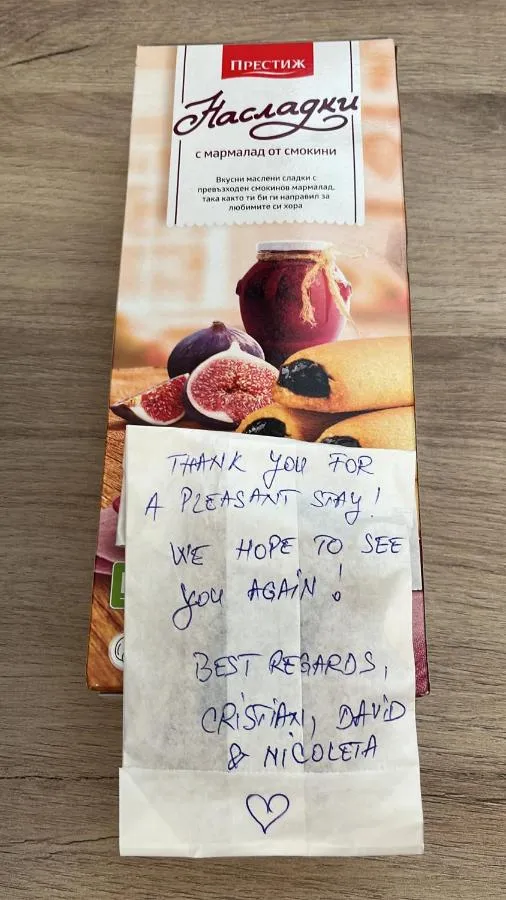 ПРЕСТИЖ
Насладки
с мармалад от смокини
Вкусни маслени сладки с
превъзходен смокинов мармалад,
така както ти би ги направил за
любимите си хора
THANK YOU FOR
A PLEASANT STAY!
WE HOPE TO SEE
YOU AGAIN!
BEST REGARDS,
CRISTIAN, DAVID
& NICOLETA